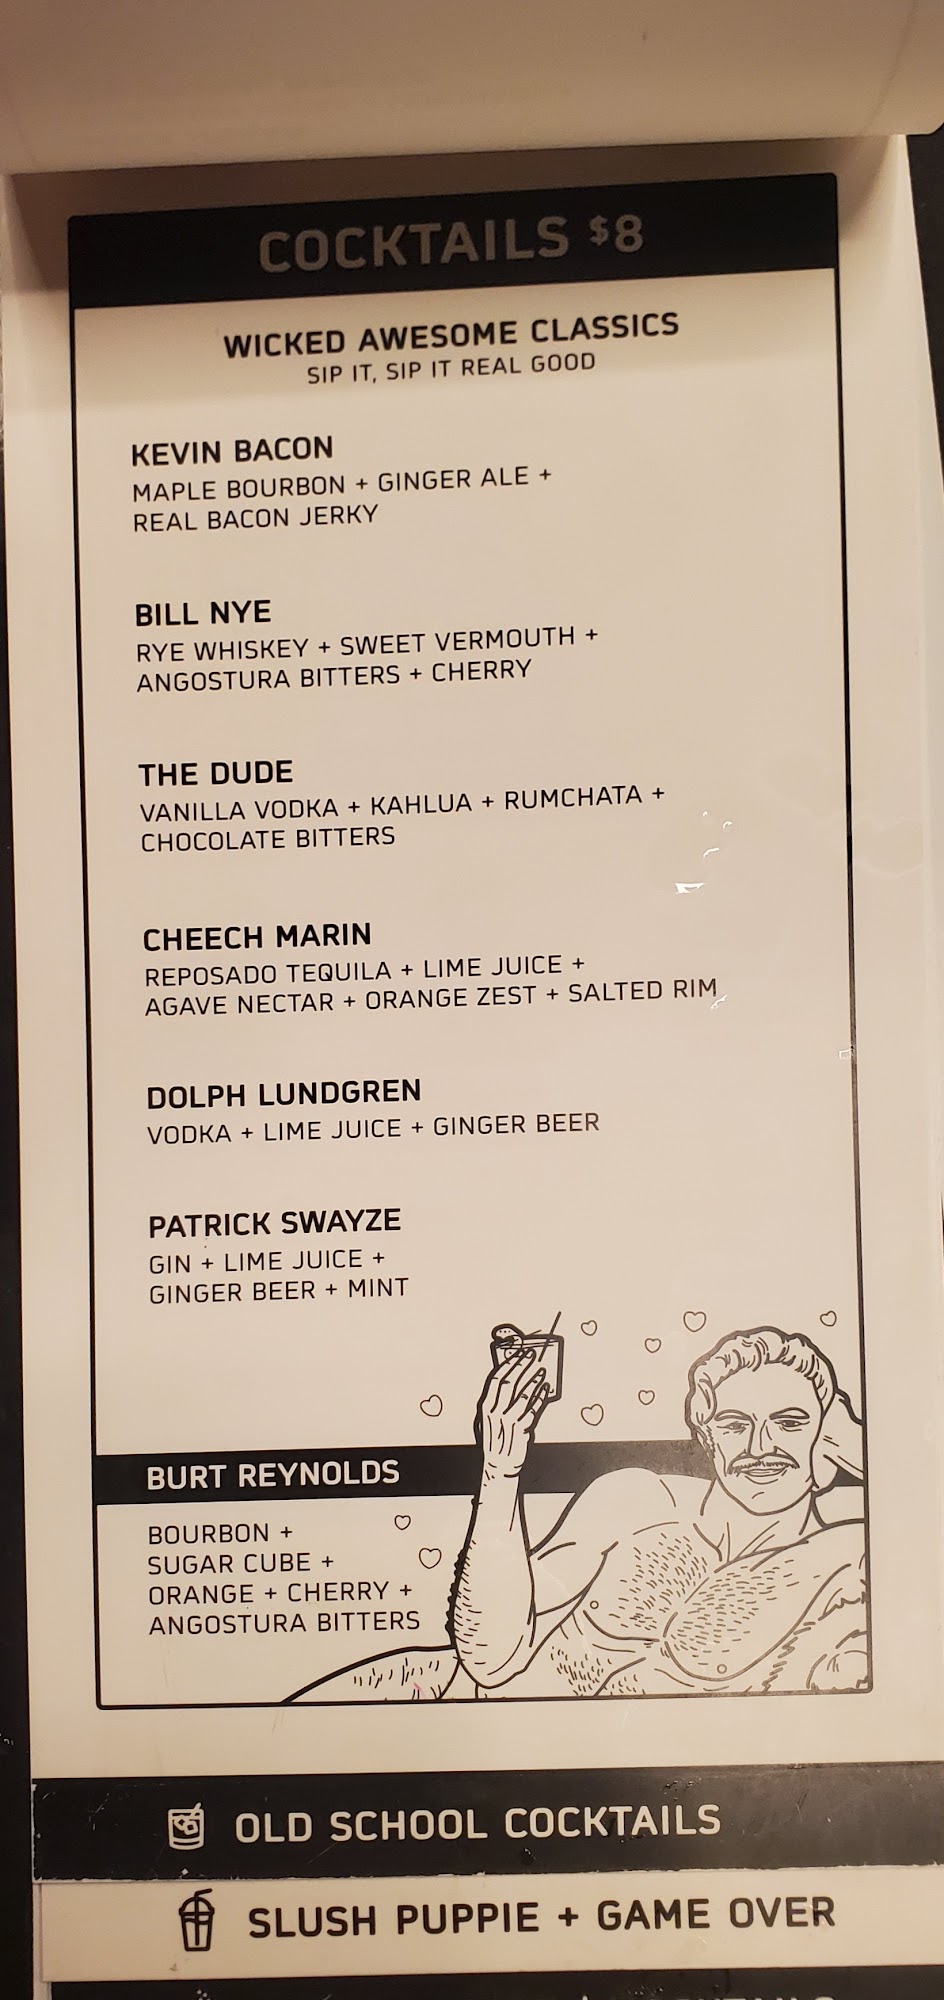 COCKTAILS $8
WICKED AWESOME CLASSICS
SIP IT, SIP IT REAL GOOD
KEVIN BACON
MAPLE BOURBON + GINGER ALE +
REAL BACON JERKY
BILL NYE
RYE WHISKEY + SWEET VERMOUTH +
ANGOSTURA BITTERS + CHERRY
THE DUDE
VANILLA VODKA + KAHLUA + RUMCHATA +
CHOCOLATE BITTERS
CHEECH MARIN
REPOSADO TEQUILA + LIME JUICE +
AGAVE NECTAR + ORANGE ZEST + SALTED RIM
DOLPH LUNDGREN
VODKA + LIME JUICE + GINGER BEER
PATRICK SWAYZE
GIN + LIME JUICE +
GINGER BEER + MINT
BURT REYNOLDS
BOURBON +
SUGAR CUBE +
ORANGE + CHERRY +
ANGOSTURA BITTERS
OLD SCHOOL COCKTAILS
SLUSH PUPPIE + GAME OVER